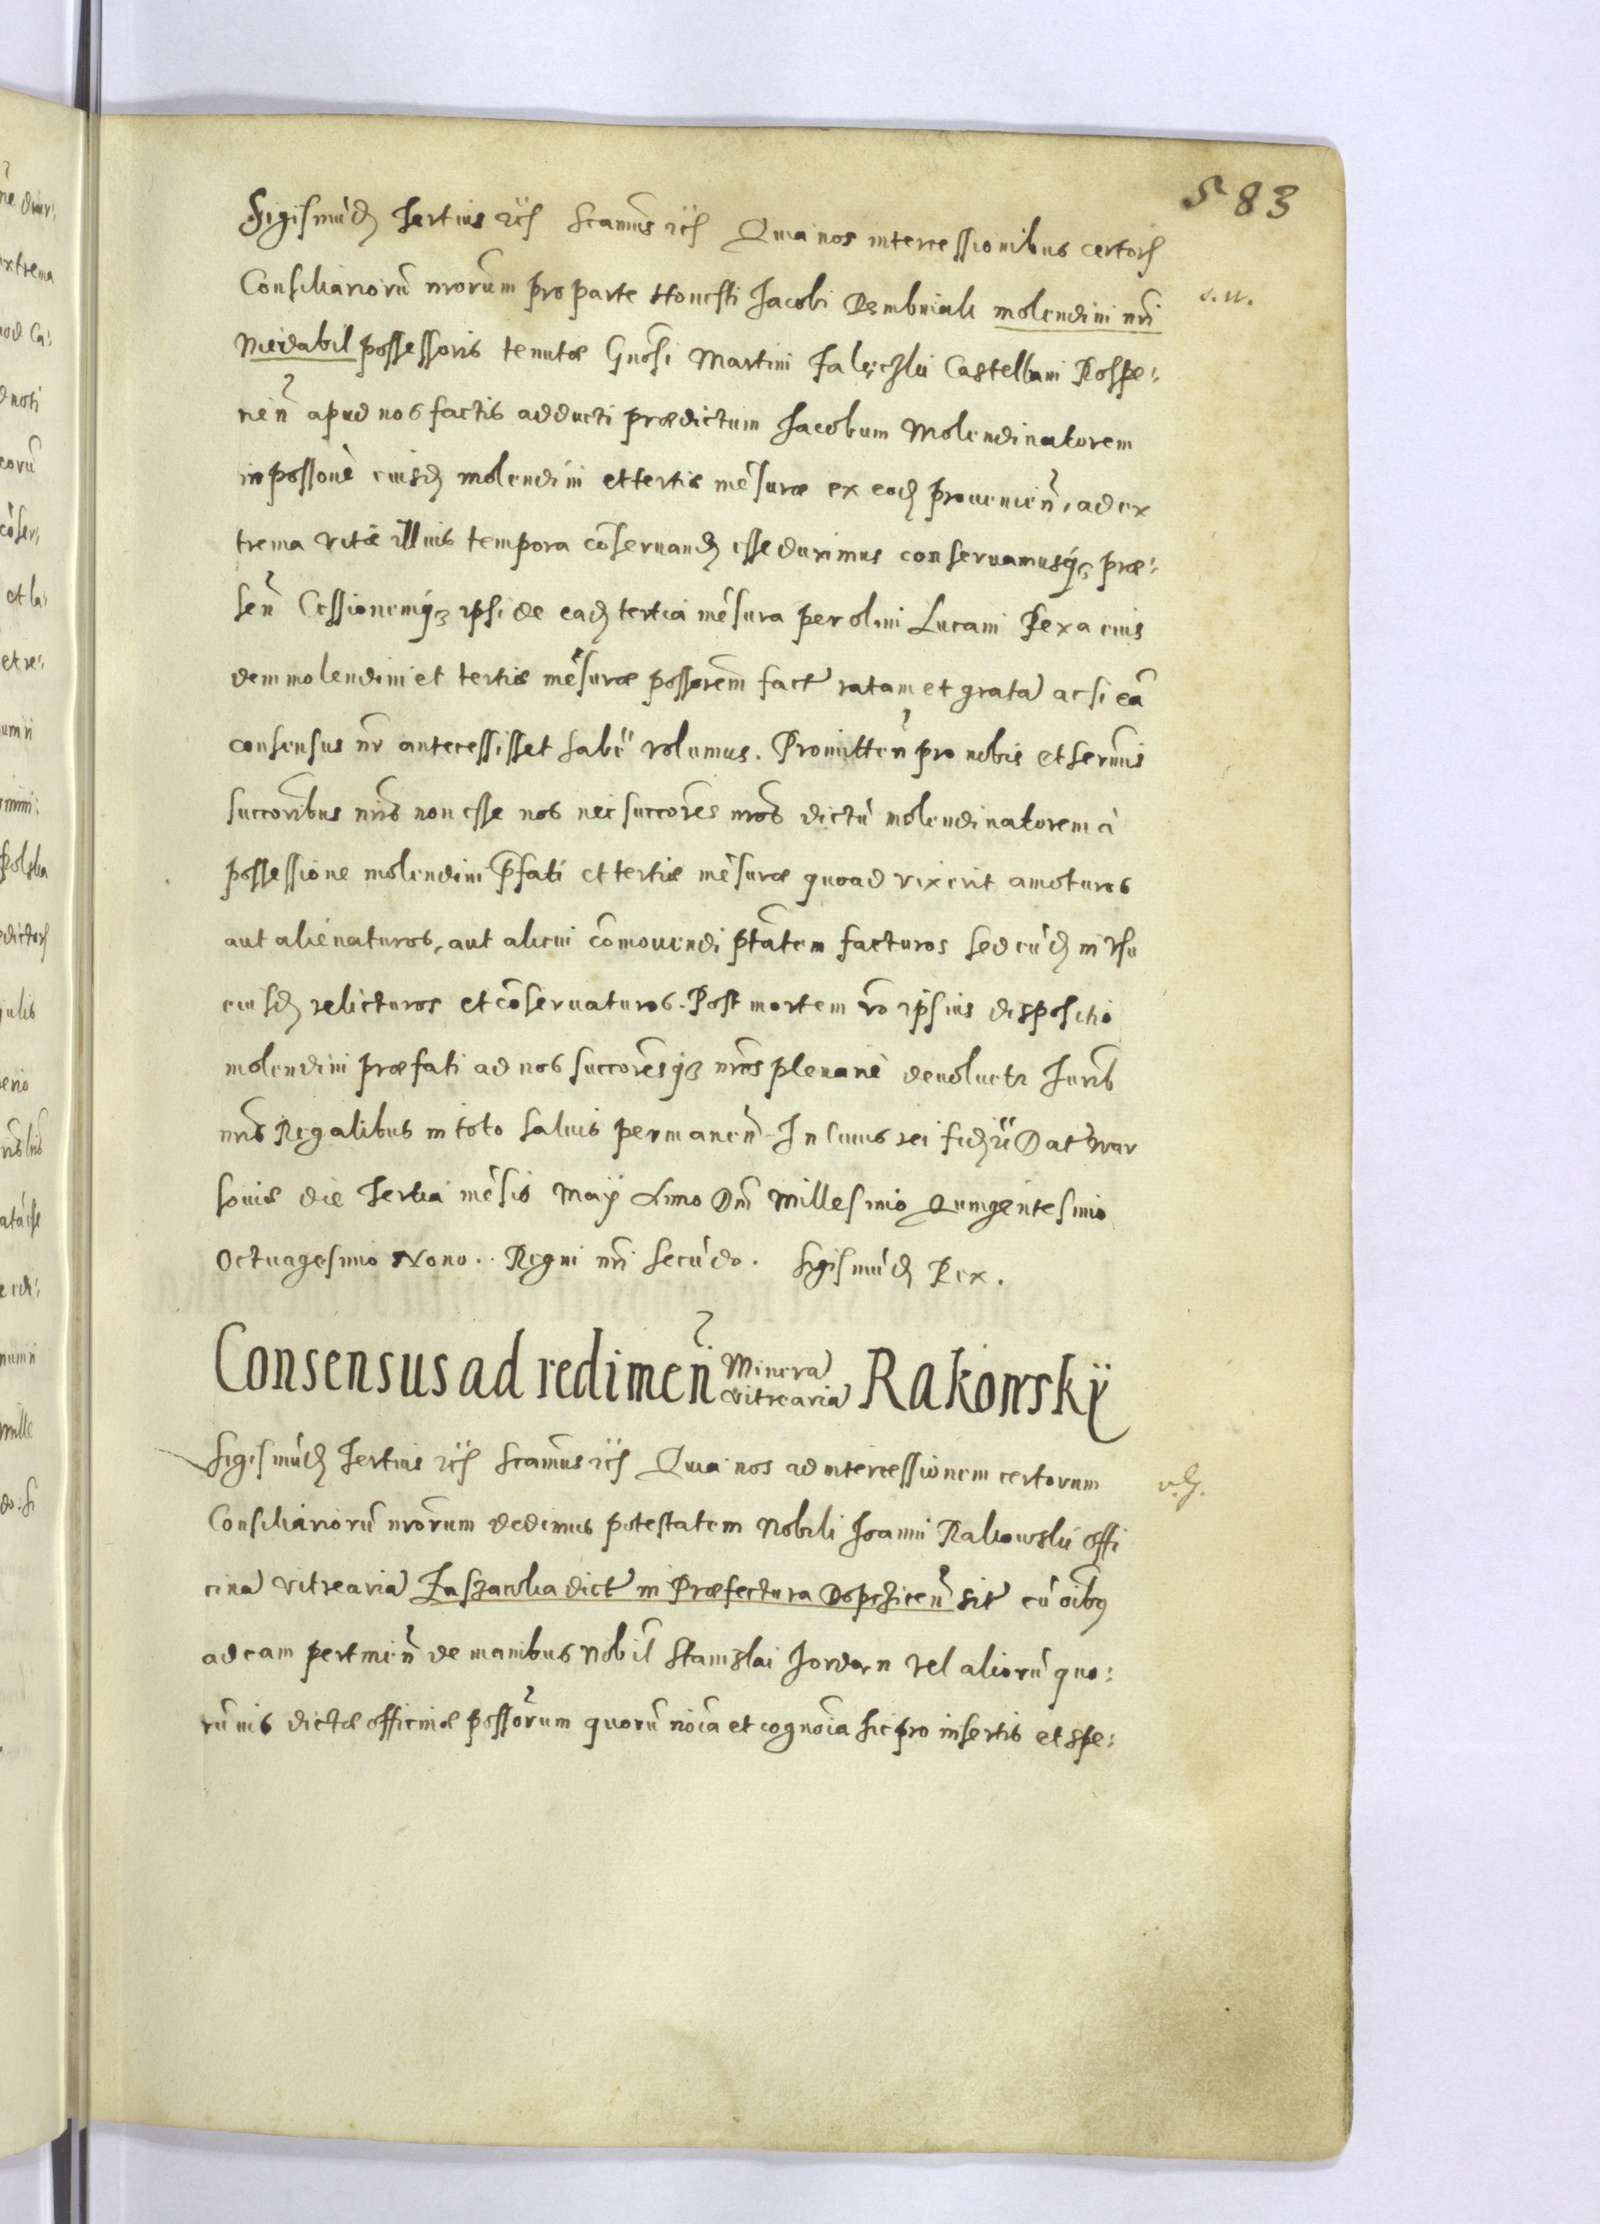 583
Sigismūdꝫ Tertius ꝛc̈ Scam̃us ꝛc̈ Quia nos intercessionibus certorꝫ
Consiliariorū nrorum pro parte Honesti Jacobi molendini nri
Niedabil possessoris tenutæ Gnosi Martini Castellani Rospe:
rieñ apud nos factis adducti prædictum Jacobum Molendinatorem
in possone eiusdꝫ molendini et tertiæ mēsuræ ex eodꝫ prouenieñ, ad ex
trema vitæ illius tempora cōseruandꝫ esse duximus conseruamusqꝫ præ:
señ Cessionemqꝫ ipsi de eadꝫ tertia mēsura per olim Lucam Rexa eius
dem molendini et tertiæ mēsuræ possorem fact ratam et gratā ac si eā
consensus nr antecessisset haberi volumus. Promitteñ pro nobis et sermis
succoribus nris non esse nos nec succores nros dictū molendinatorem à
possessione molendini p̄fati et tertiæ mēsuræ quoad vixerit amoturos
aut alienaturos, aut alicui cōmouendi ptatem facturos sed eūdꝫ in vsu
eiusdꝫ relicturos et cōseruaturos. Post mortem vo ipsius dispositio
molendini præfati ad nos succoresqꝫ nros plenariè deuoluetr Jurib
nris Regalibus in toto saluis permaneñ. In cuius rei fidꝫ ꝛc̈ Dat War
souiæ die Tertia mēsis Maÿ Anno Dni Millesimo Quingentesimo
Octuagesimo Nono. Regni nri secūdo. Sigismūdꝫ Rex.
Consensus ad redimeñ Minerā vitreariā Rakowskÿ
Sigismūdꝫ Tertius ꝛc̈ Scam̃us ꝛc̈ Quia nos ad intercessionem certorum
Consiliariorū nrorum dedimus potestatem Nobili Joanni Rakowski offi
cinā vitreariā dict in Præfectura Dopcziceñ sit cū oibꝫ
ad eam pertineñ de manibus Nobil Stanislai Jordan vel aliorū quo:
rūuis dictæ officinæ possorum quorū noia et cognoia hic pro insertis et spe: